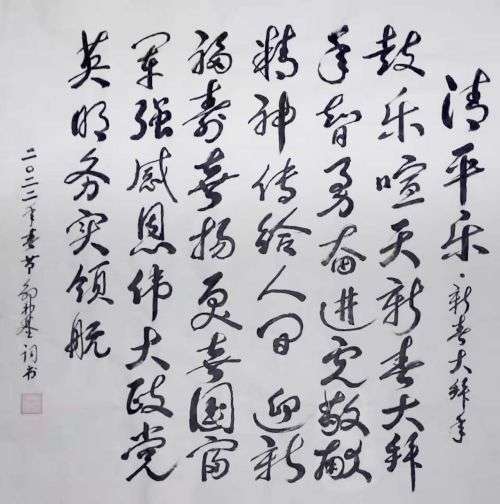 清平乐·新春大拜年
鼓乐喧天新春大拜
年智勇奋进虎敬献
精神传给人间 迎新
福寿喜扬更喜国富
军强感恩伟大政党
英明务实领航
二〇二二年春节 词书